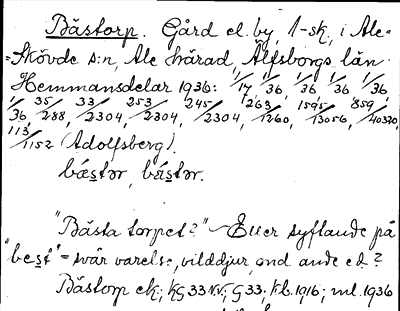 Bästorp. Gård el. by, 1-sk, i Ale=
=Skövde s:n, Ale härad, Älfsborgs län.
Hemmansdelar 1936: 1/17, 1/36, 1/36, 1/36, 1/36,
1/36, 35/288, 33/2304, 253/2304, 245/2304, 263/1260, 1595/13056, 859/40320,
113/1152 (Adolfsberg).
bæstər, bǽstər.
"Bästa torpet?" Eller syftande på
"best" = svår varelse, vilddjur, ond ande el.?
Bästorp ek; KG 33 KV; G 33; kb. 1916; ml. 1936